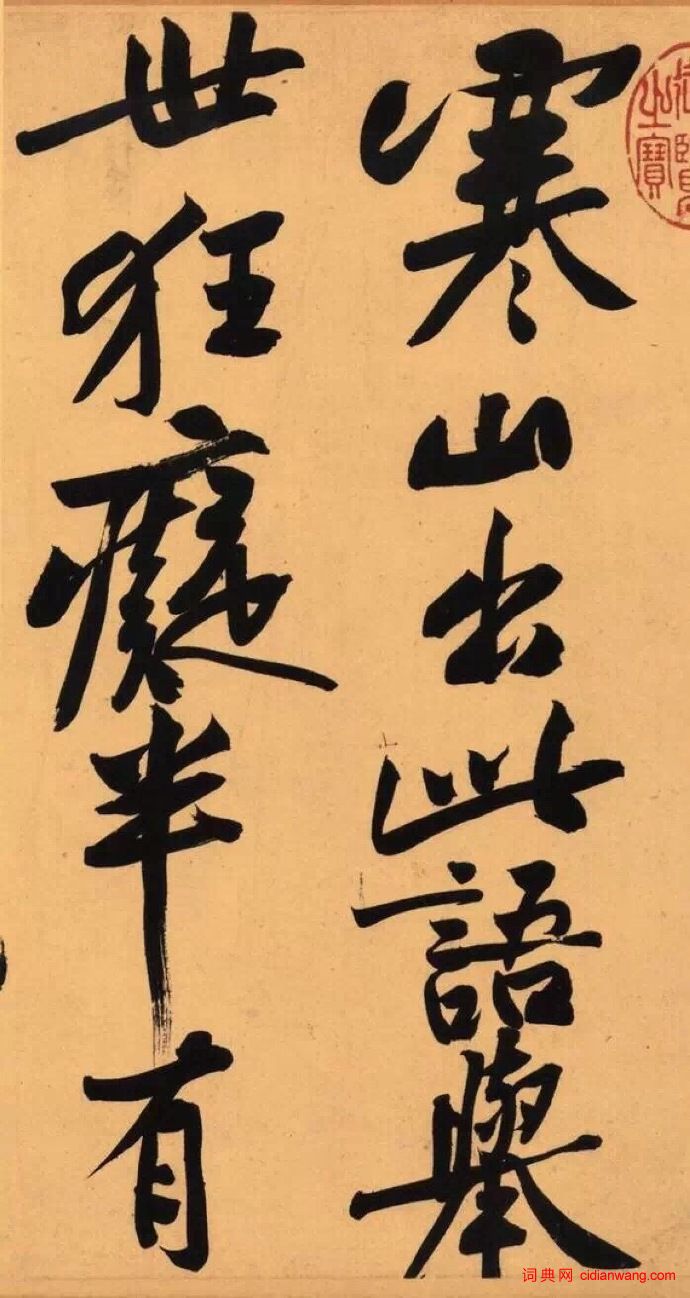 寒山出此語舉
世狂癡半有
词典网 cidianwang.com